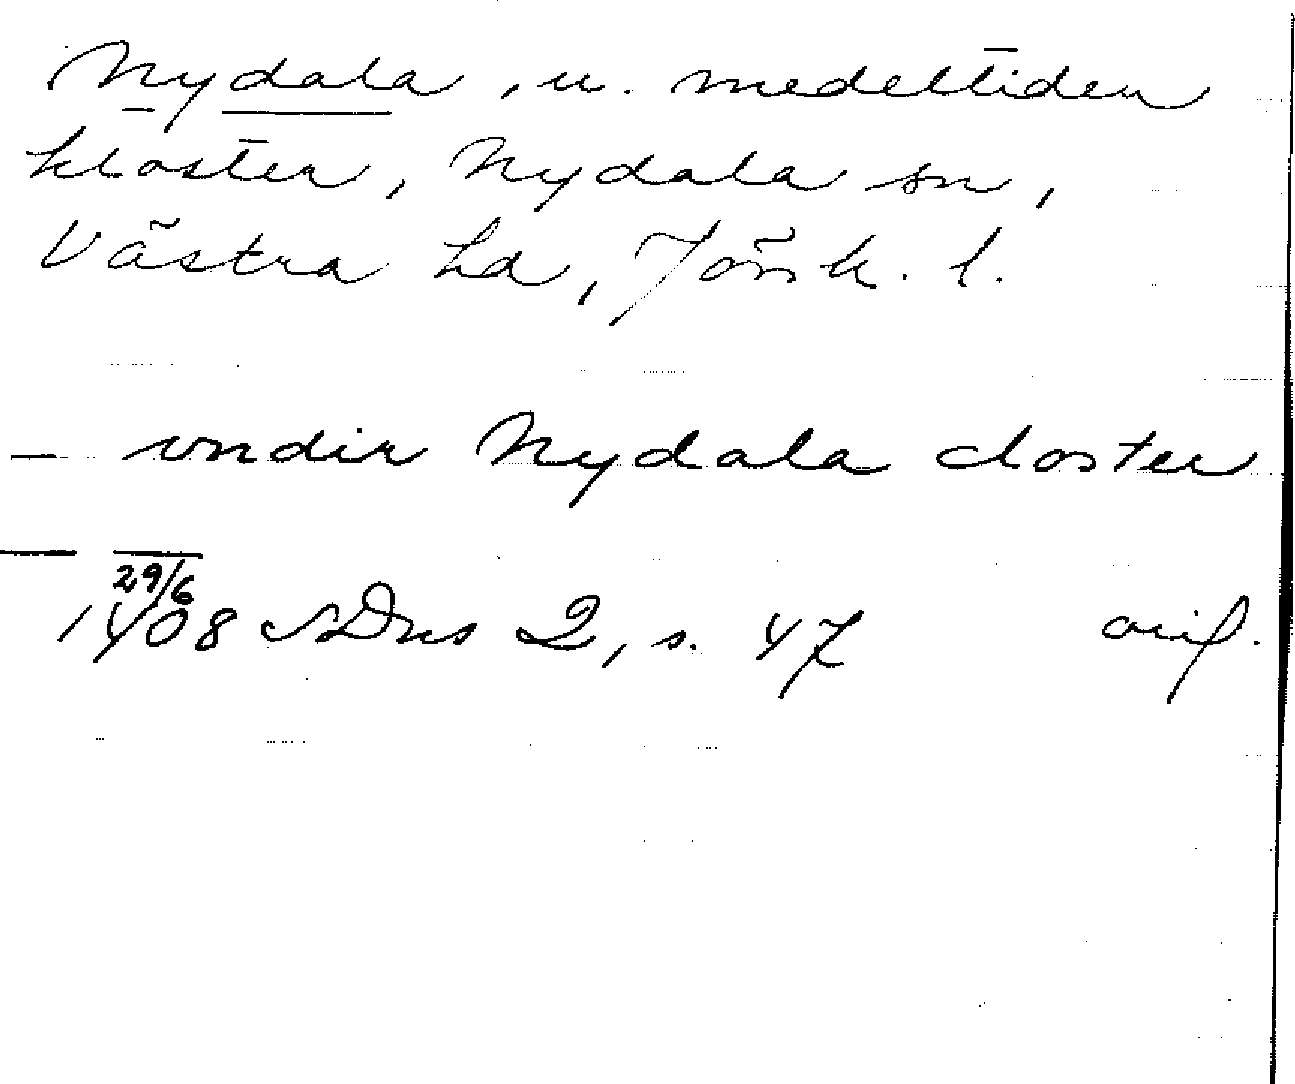 Nydala, u. medeltiden
kloster, Nydala sn,
Västra hd, Jönk. l.
— vndir Nydala closter
— 29/6
1408 SDns 2, s. 47 orig.